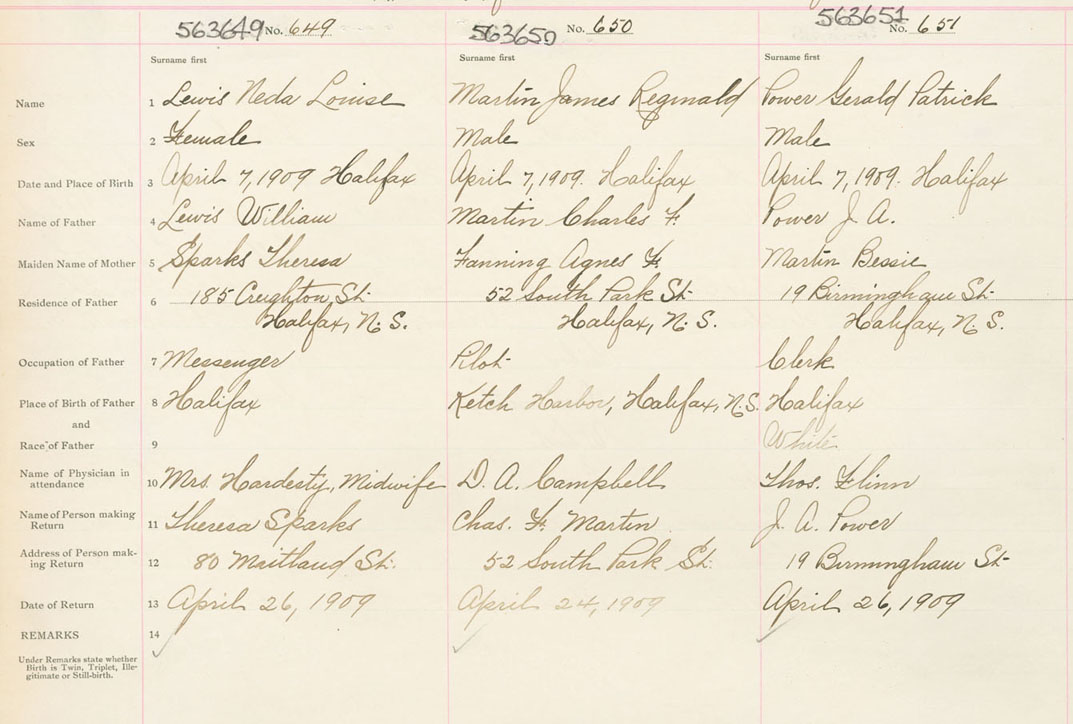 563649 No. 649
563650 No. 650
563651 No. 651
Surname first Surname first Surname first
Name 1 Lewis Neda Louise Martin James Reginald Power Gerald Patrick
Sex 2 Female Male Male
Date and Place of Birth 3 April 7, 1909 Halifax April 7, 1909. Halifax April 7, 1909. Halifax
Name of Father 4 Lewis William Martin Charles F. Power J. A.
Maiden Name of Mother 5 Sparks Theresa Fanning Agnes F. Martin Bessie
Residence of Father 6 185 Creighton St. 52 South Park St. 19 Birmingham St.
Halifax, N. S. Halifax, N. S. Halifax, N. S.
Occupation of Father 7 Messenger Pilot Clerk
Place of Birth of Father 8 Halifax Ketch Harbor, Halifax, N.S. Halifax
and
Race of Father 9 White
Name of Physician in
attendance 10 Mrs. Hardesty, Midwife D. A. Campbell Thos. Flinn
Name of Person making
Return 11 Theresa Sparks Chas. F. Martin J. A. Power
Address of Person mak-
ing Return 12 80 Maitland St. 52 South Park St. 19 Birmingham St.
Date of Return 13 April 26, 1909 April 24, 1909 April 26, 1909
REMARKS 14
Under Remarks state whether
Birth is Twin, Triplet, Ille-
gitimate or Still-birth.